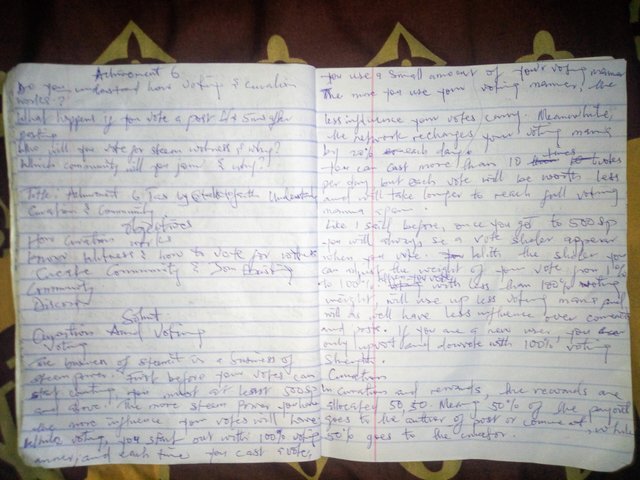 Achivement 6
Do you understand how voting & curation
works?
What happens if you vote a post 4 or 5 mins after
posting
Who will you vote for steem witness & why?
Which community will you join & why?
Title: Achivment 6 Task by Understanding
Curation & Community
Objectives
How Curation works
Know Witness & how to vote for witness
Create Community & Join
Community
Discord
Start
Curation And Voting
Voting
The business of steemit is a business of
steem power. First before your votes can
start counting, you must at least 500sp
and above the more steem power you have
the more influence your votes will have
While voting, you start out with 100% voting
and each time you cast a vote,
you use a small amount of your voting manna
The more you use your voting manna, the
less influence your votes carry. Meanwhile,
the network recharges your voting manna
by 20% each day.
you can cast more than 10 times votes
per day but each vote will be worth less
and will take longer to reach full voting
manna again.
Like I said before, once you get to 500sp
you will always see a vote slider appear
when you vote. With the slider you
can adjust the weight of your vote from 1%
to 100% with less than 100% voting
weight, will use up less voting manna and
will as well have less influence over comments
and posts. If you are a new user, you
only upvote and downvote with 100% voting
Strength.
Curation
In curation and rewards, the rewards are
allocated 50,50 Meaning 50% of the payout
goes to the author of post or comment, while
50% goes to the curator.